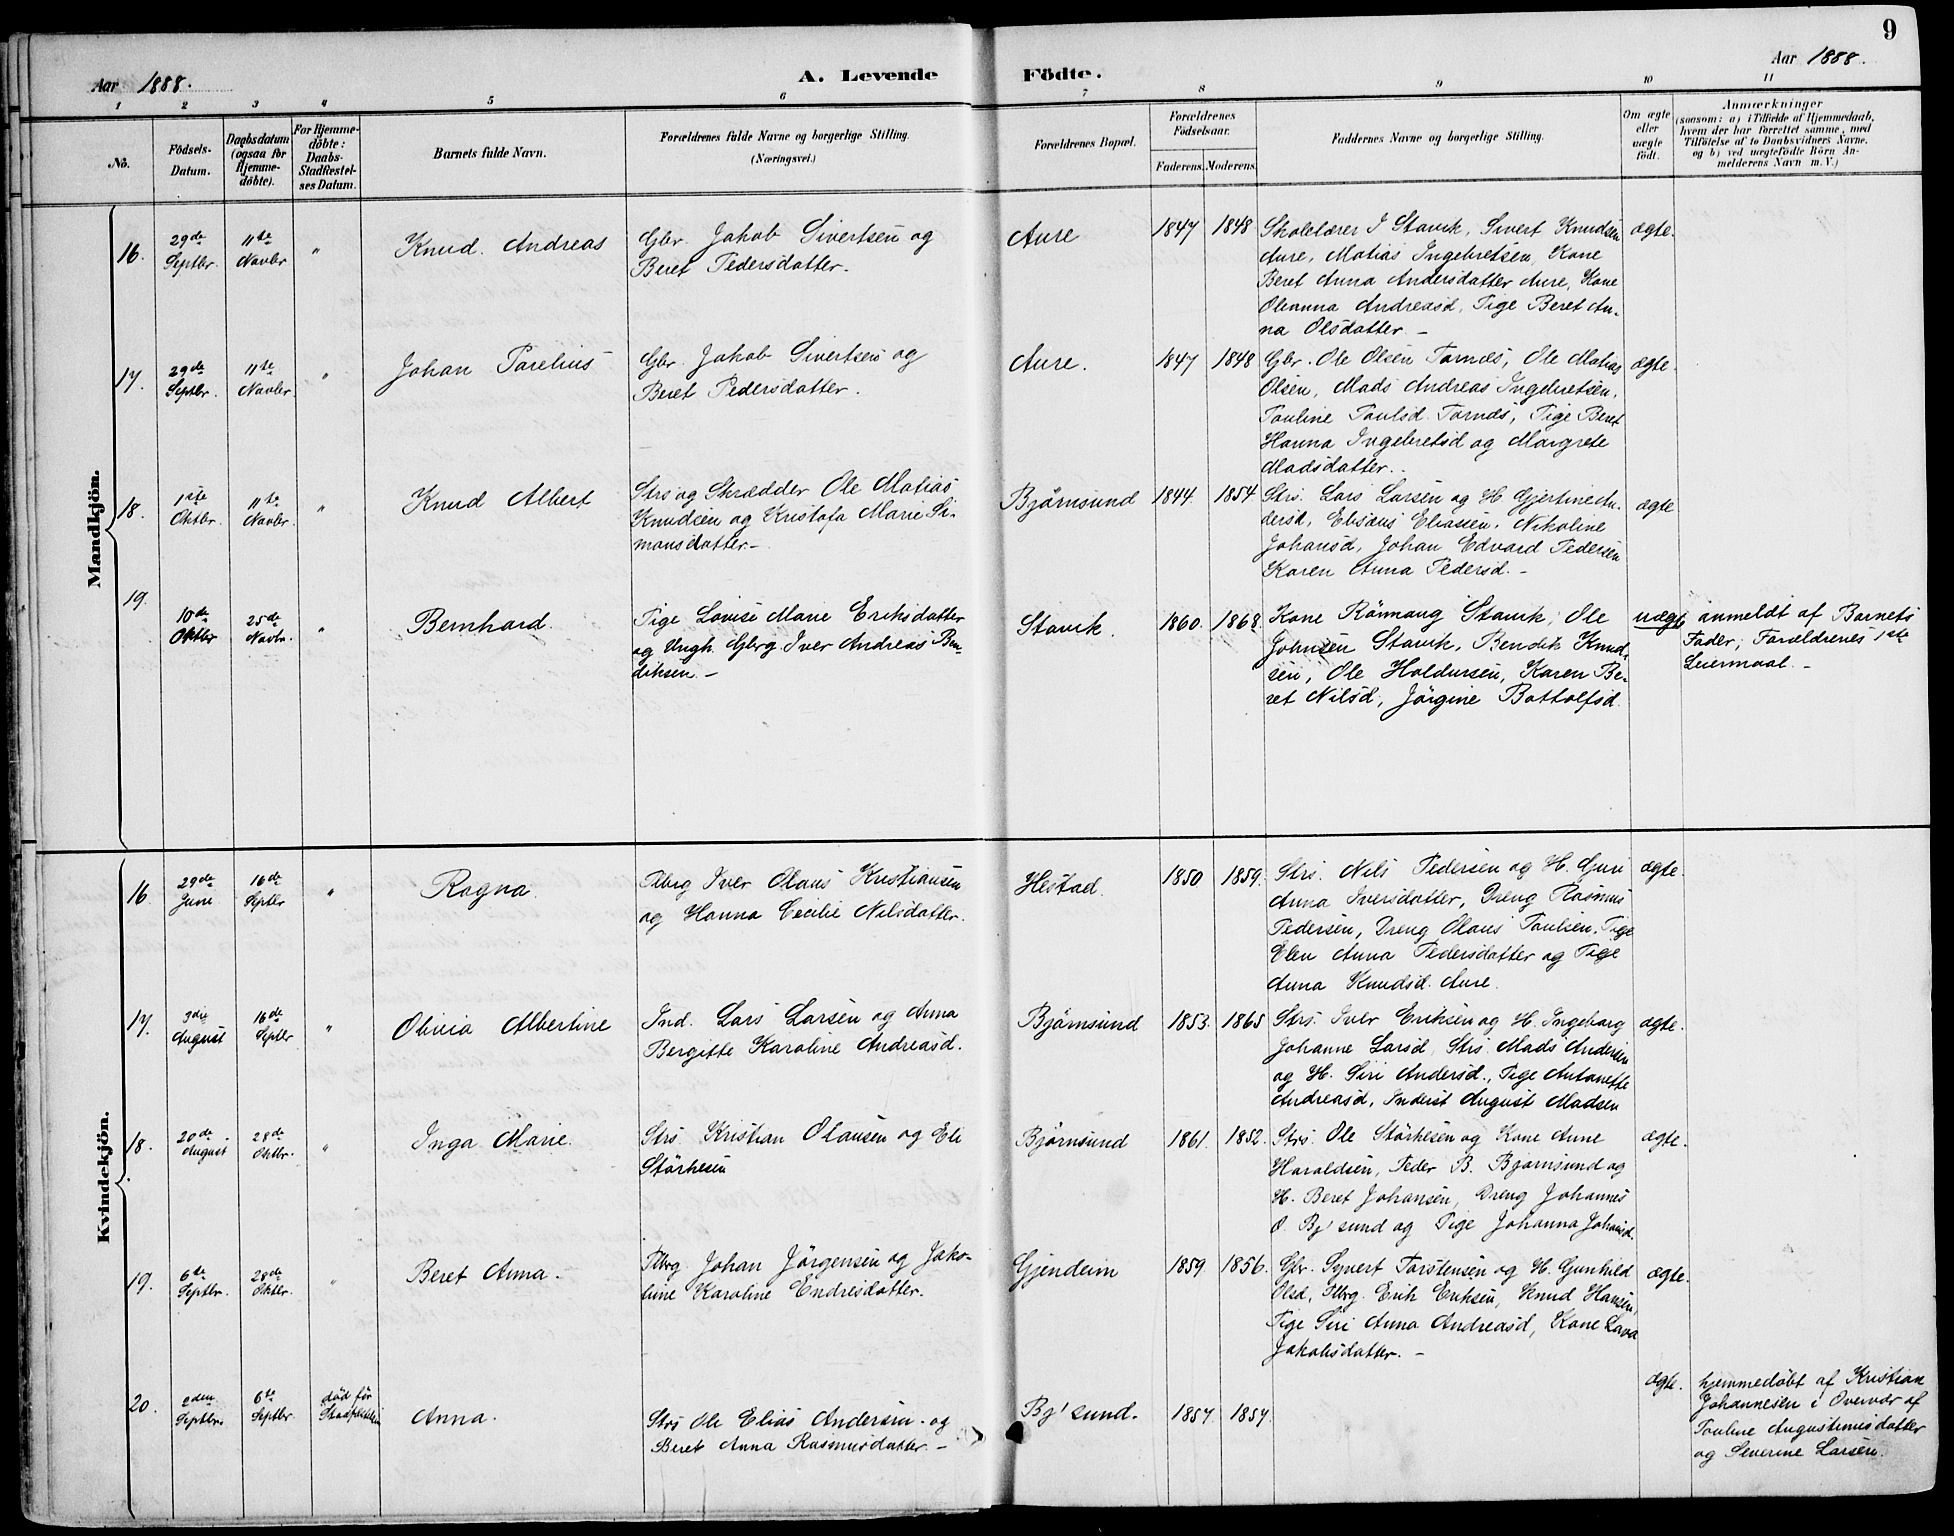 9
Aar 1888.
A. Levende Födte.
Aar 1888.
1 2 3 4 5 6 7 8 9 10 11
No.
Födsels-
Datum.
Daabsdatum
(ogsaa for
Hjemme-
döbte).
For Hjemme-
döbte:
Daabs-
Stadfestel-
ses Datum.
Barnets fulde Navn.
Forældrenes fulde Navne og borgerlige Stilling.
(Næringsvei.)
Forældrenes Bopæl.
Forældrenes
Födselsaar.
Faderens. Moderens.
Faddernes Navne og borgerlige Stilling.
Om ægte
eller
uægte
födt.
Anmærkninger
(saasom: a) i Tilfælde af Hjemmedaab,
hvem der har forrettet samme, med
Tilföielse af to Daabsvidners Navne.
og b) ved uægtefödte Börn An-
melderens Navn m. V.)
Mandkjön.
16.
29de
Septbr.
11te
Novbr
"
Knud. Andreas
Gbr. Jakob Sivertsen og
Beret Pedersdatter.
Aure
1847 1848
Skolelærer I Stavik, Sivert Knudsen
Aure, Matias Ingebretsen, Kone
Beret Anna Andersdatter Aure, Kone
Oleanna Andreasd, Pige Beret An-
na Olsdatter. –
ægte.
17.
29de
Septbr.
11te
Novbr.
"
Johan Parelius
Gbr. Jakob Sivertsen og
Beret Pedersdatter.
Aure.
1847 1848
Gbr. Ole Olsen Tornes, Ole Matias
Olsen, Mads Andreas Ingebretsen,
Pauline Paulsd. Tornes, Pige Beret
Hanna Ingebretsd og Margrete
Madsdatter..
ægte.
18.
1ste
Oktbr.
11te
Novbr.
"
Knud Albert
Strs og Skrædder Ole Matias
Knudsen og Kristofa Marie Si-
monsdatter.–
Bjørnsund
1844. 1854.
Strs. Lars Larsen og H. Gjertine An-
dersd, Elisæus Eliassen, Nikoline
Johansd, Johan Edvard Pedersen
Karen Anna Pedersd. –
ægte
19.
10de
Oktbr
25de
Novbr.
"
Bernhard.
Pige Lovise Marie Eriksdatter
og Ungk. Gbrg. Iver Andreas Ben-
diksen. –
Stavik.
1860. 1868.
Kone Rönnaug Stavik, Ole
Johnsen Stavik, Bendik Knud-
sen, Ole Haldorsen, Karen Be-
ret Nilsd, Jörgine Bottolfsd.
uægte
anmeldt af Barnets
Fader, Forældrenes 1ste
Leiermaal. –
Kvindekjön.
16
29de
Juni
16de
Septbr
"
Ragna.
Plbrg Iver Olaus Kristiansen
og Hanna Cecilie Nilsdatter.
Hestad.
1850 1859.
Strs. Nils Pedersen og H. Guri
Anna Iversdatter, Dreng Rasmus
Pedersen, Dreng Olaus Paulsen, Pige
Elen Anna Pedersdatter og Pige
Anna Knudsd. Aure.
ægte.
17.
3die
August
16de
Septbr
"
Olivia Albertine
Ind. Lars Larsen og Anna
Bergitte Karoline Andreasd.
Bjørnsund
1853. 1865
Strs. Iver Eriksen og H. Ingeborg
Johanne Larsd, Strs. Mads Andersen
og H. Siri Andersd., Pige Antonette
Andreasd, Inderst August Madsen
ægte.
18.
20de
August.
28de
Oktbr.
"
Inga Marie.
Strs. Kristian Olausen og Eli
Störkesen
Bjørnsund
1861. 1852.
Strs. Ole Störkesen og Kone Anne
Haraldsen, Peder B. Bjørnsund og
H. Beret Johansen, Dreng Johannes
O. Bj'sund og Pige Johanna Johansd.
ægte.
19.
6te
Septbr.
28de
Oktbr.
"
Beret Anna.
Plbrg. Johan Jörgensen og Jako-
bine Karoline Endresdatter.
Gjendem
1859 1856.
Gbr. Syvert Torstensen og H. Gunhild
Olsd, Plbrg. Erik Eriksen, Knud Hansen,
Pige Siri Anna Andreasd, Kone Lava
Jakobsdatter. –
ægte.
20.
2den
Septbr.
6te
Septbr.
död før
Anna.
Strs Ole Elias Andersen og
Beret Anna Rasmusdatter. –
Bj'sund.
1857. 1857.
ægte.
hjemmedöbt af Kristian
Johannesen i Overvær af
Pauline Augustinusdatter
og Severine Larsen.